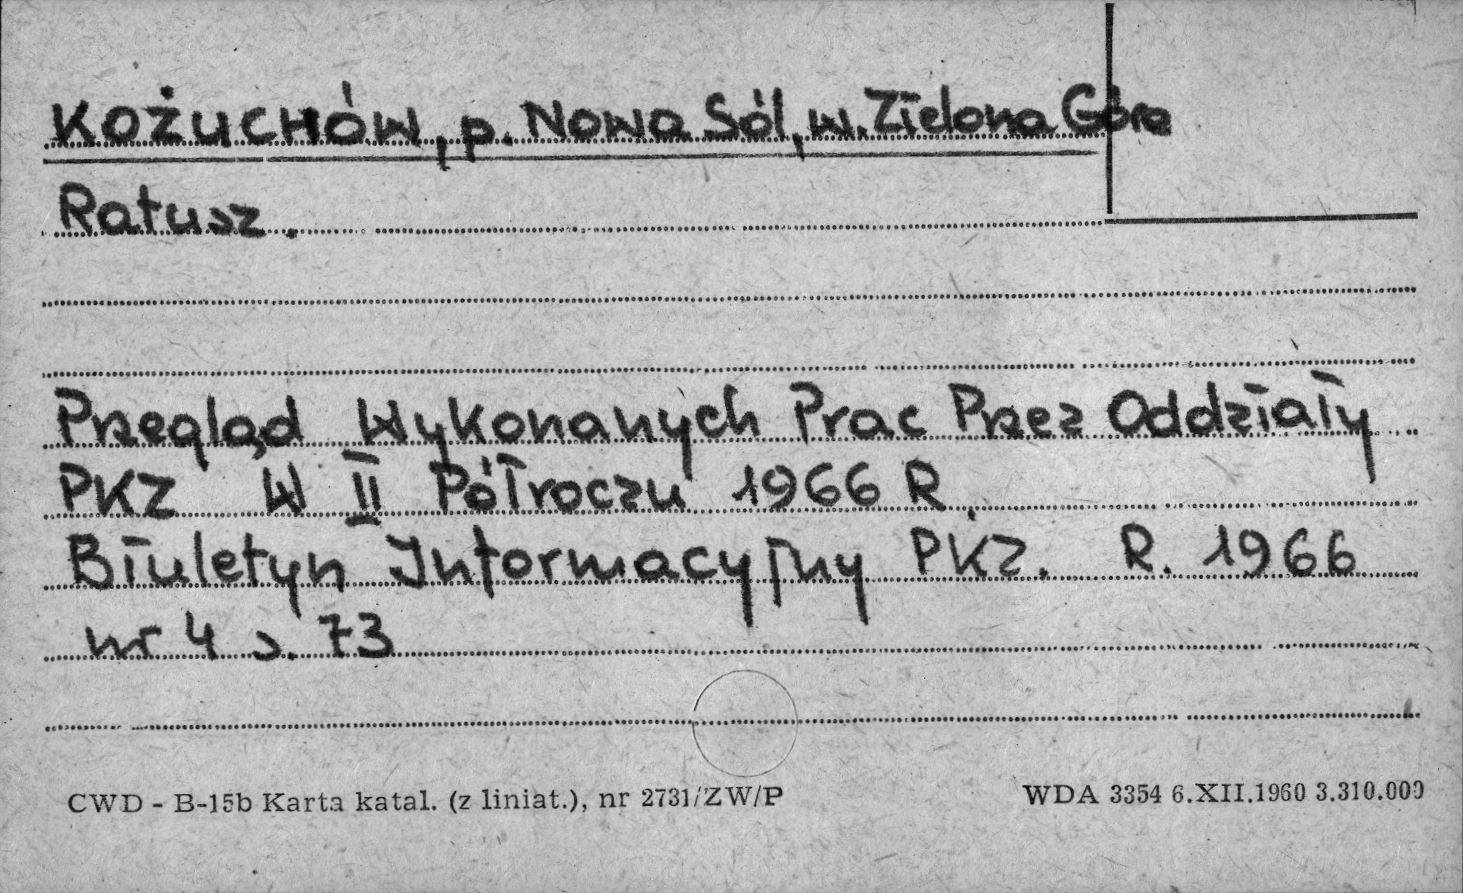 KOŻUCHÓW, p. Nowa Sól, w. Zielona Góra
Ratusz.
Przegląd Wykonanych Prac Przez Oddziały
PKZ W II Półroczu 1966 R.
Biuletyn Informacyjny PKZ. R. 1966
nr 4 s. 73
CWD - B-15b Karta katal. (z liniat.), nr 2731/ZW/P WDA 3354 6.XII.1960 3.310.000